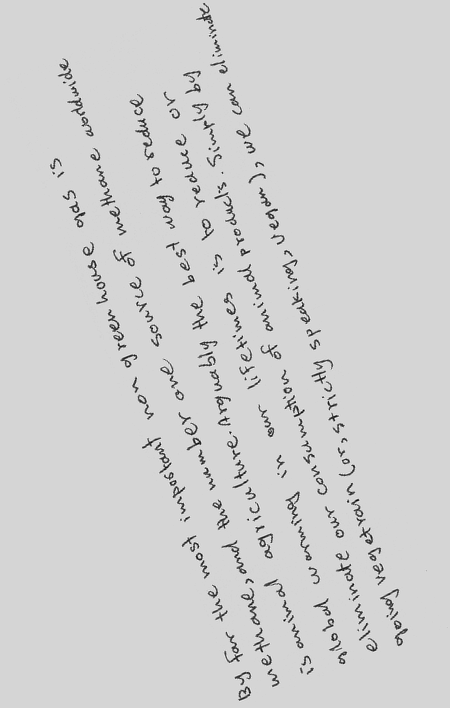 By far the most impostant non greenhouse gas is
methane, and the number one source of methane worldwide
is animal agriculture. Arguably the best way to reduce
global warming in our lifetimes is to reduce or
eliminate our consumption of animal products. Simply by
going vegetrain (or, strictly speaking, vegan), we can eliminate